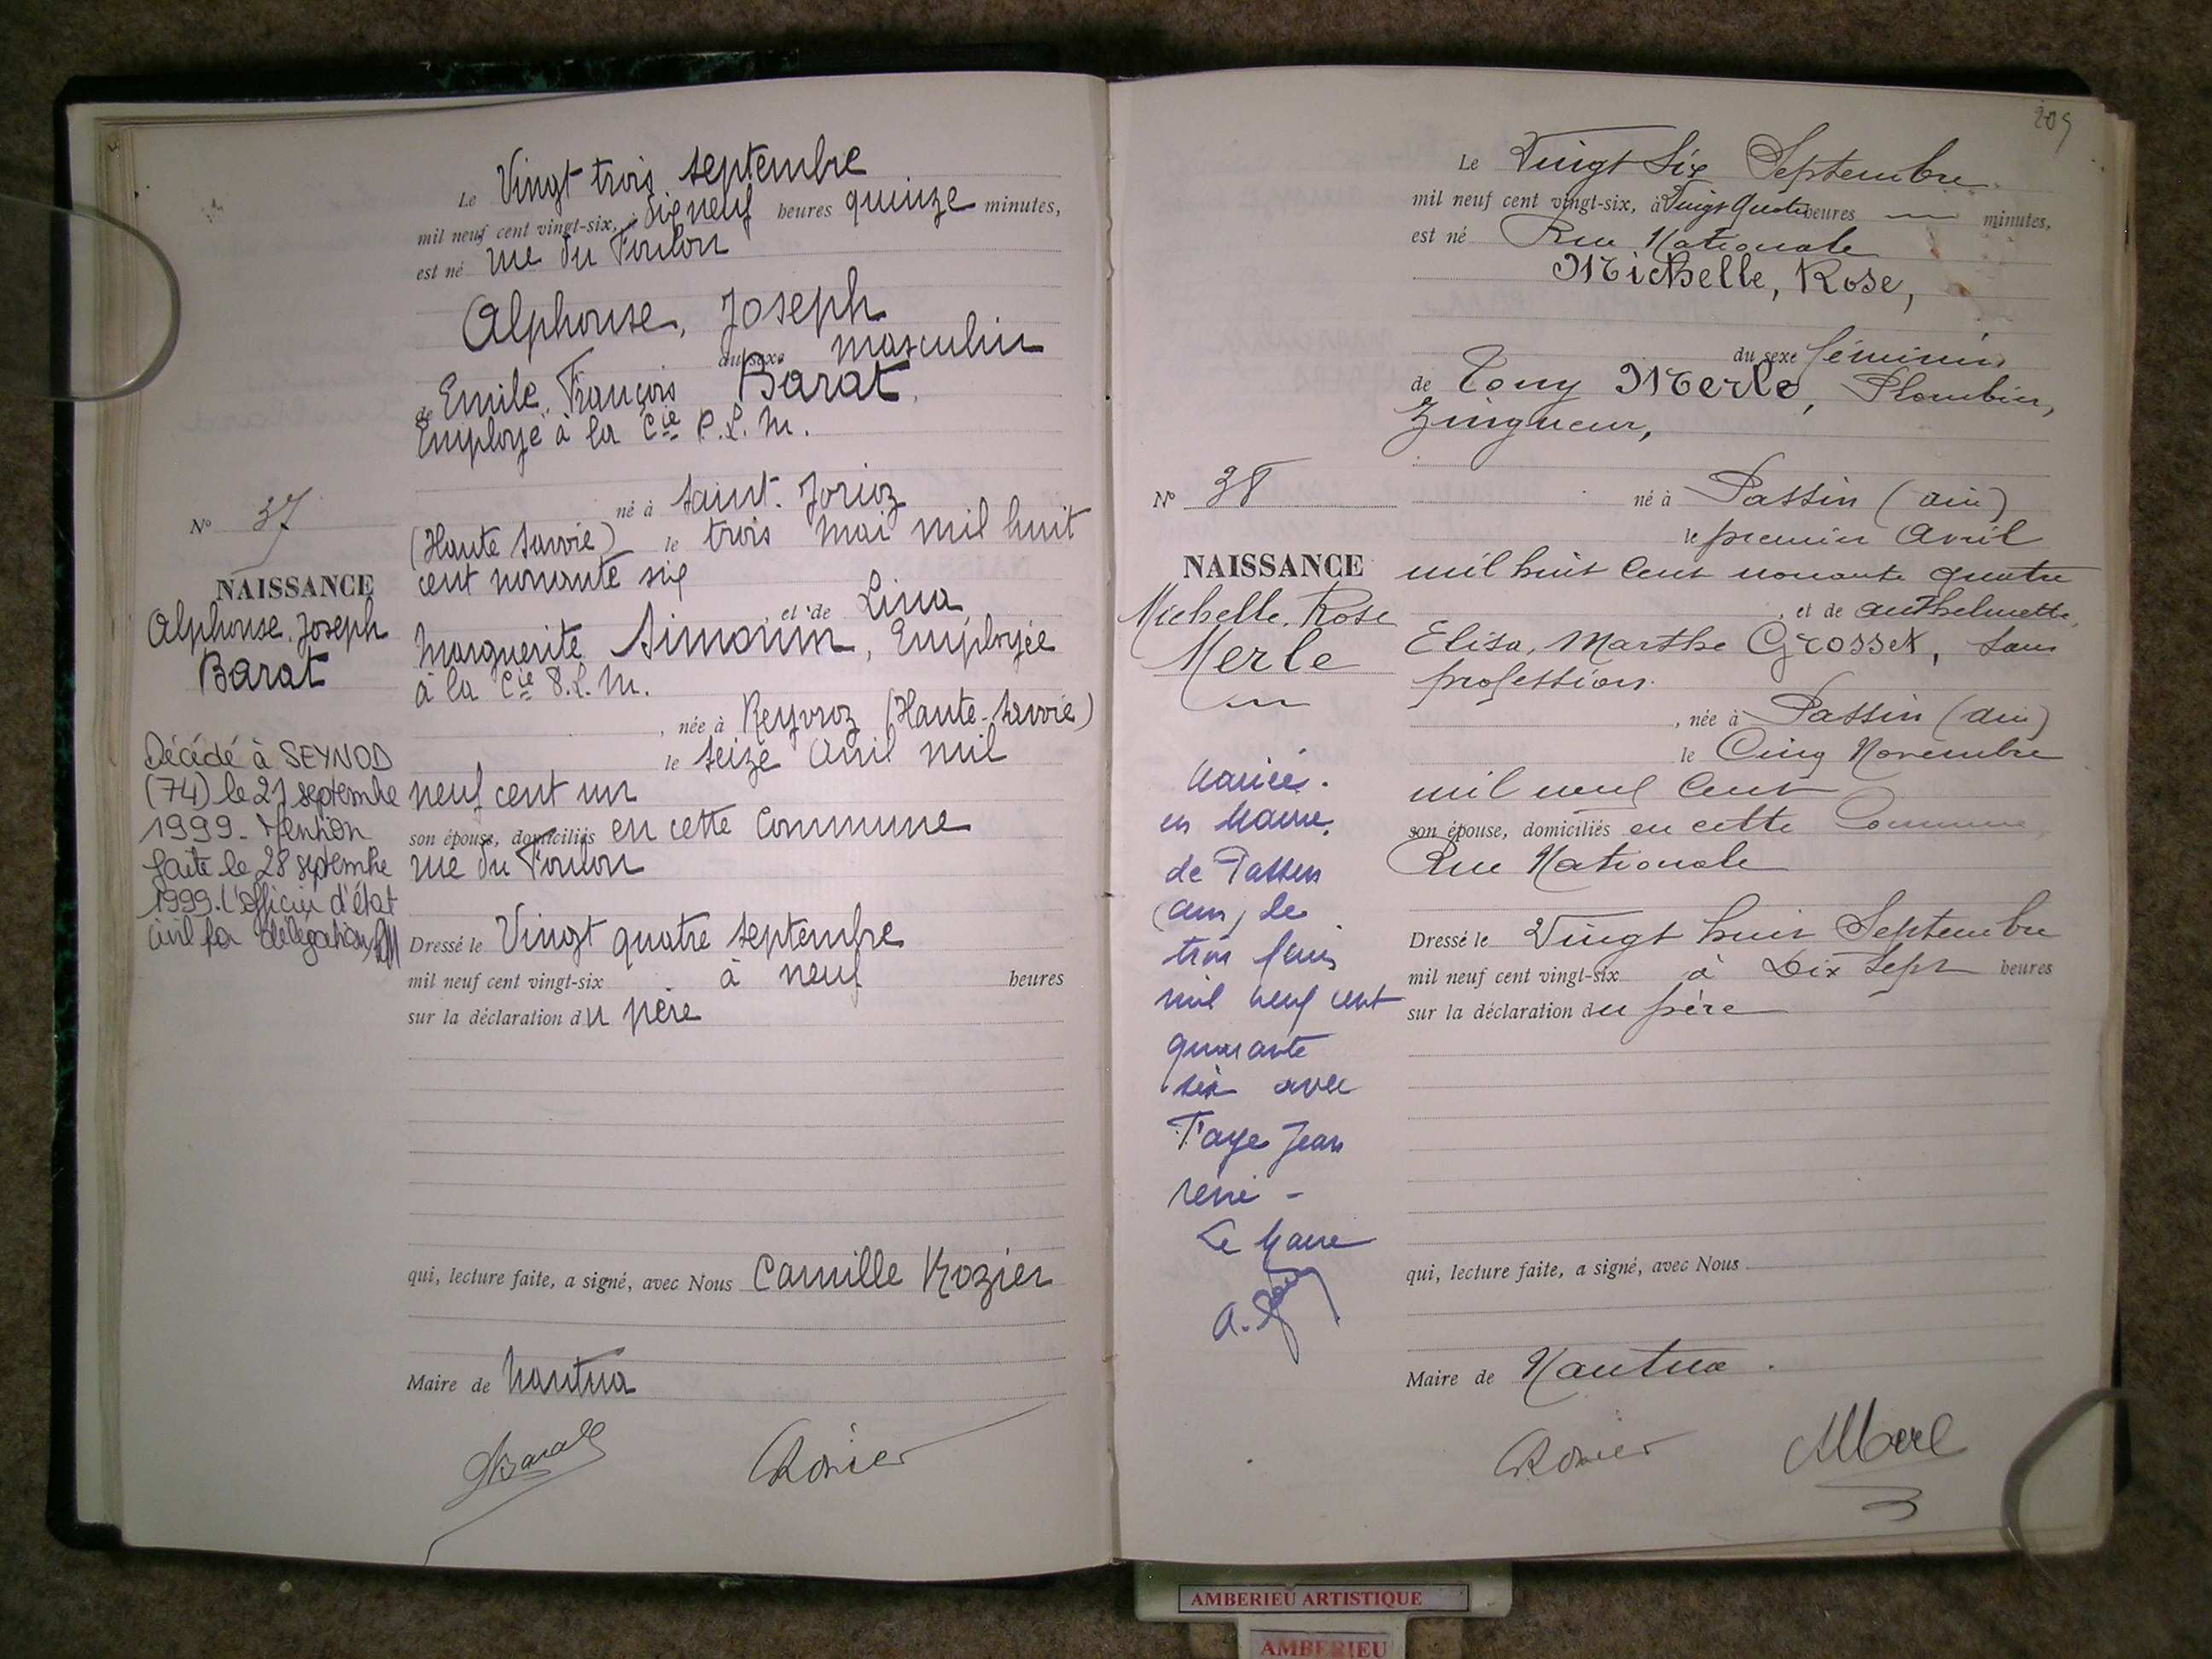 Le Vingt trois septembre
mil neuf cent vingt-six, à dix neuf heures quinze minutes,
est né rue du Foulon
Alphonse, Joseph
du sexe masculin
de Emile, François Barat,
Employé à la Cie P.L.M.
né à Saint-Jorioz
N° 37
(Haute Savoie) le trois mai mil huit
cent nonante six
NAISSANCE
Alphonse, Joseph
Barat
, et de Lina
Marguerite Simonin, Employée
à la Cie P.L.M.
, née à Reyvroz (Haute-Savoie)
le seize Avril mil
neuf cent un
son épouse, domiciliés en cette Commune
rue du Foulon
Décédé à SEYNOD
(74) le 21 septembre
1999. Mention
faite le 28 septembre
1999. L'officier d'état
civil par délégation
Dressé le Vingt quatre septembre
mil neuf cent vingt-six à neuf heures
sur la déclaration du père
qui, lecture faite, a signé, avec Nous Camille Rozier
Maire de Nantua
Barat Rozier
209
Le Vingt Six Septembre
mil neuf cent vingt-six, à Vingt Quatre heures — minutes,
est né Rue Nationale
Michelle, Rose,
du sexe féminin
de Tony Merle, Plombier,
Zingueur,
né à Passin (ain)
N° 38
le premier Avril
NAISSANCE
Michelle, Rose
Merle
mil huit Cent nonante quatre
, et de Anthelmette,
Elisa, Marthe Grosset, Sans
profession.
, née à Passin (ain)
le Cinq Novembre
mil neuf Cent
son épouse, domiciliés en cette Commune
Rue Nationale
Mariée.
en Mairie
de Passin
(ain) le
trois juin
mil neuf cent
quarante
six avec
Faye Jean
rené -
Le Maire
Dressé le Vingt huit Septembre
mil neuf cent vingt-six à Dix Sept heures
sur la déclaration du père
qui, lecture faite, a signé, avec Nous
Maire de Nantua.
Rozier Merle
AMBERIEU ARTISTIQUE
AMBERIEU